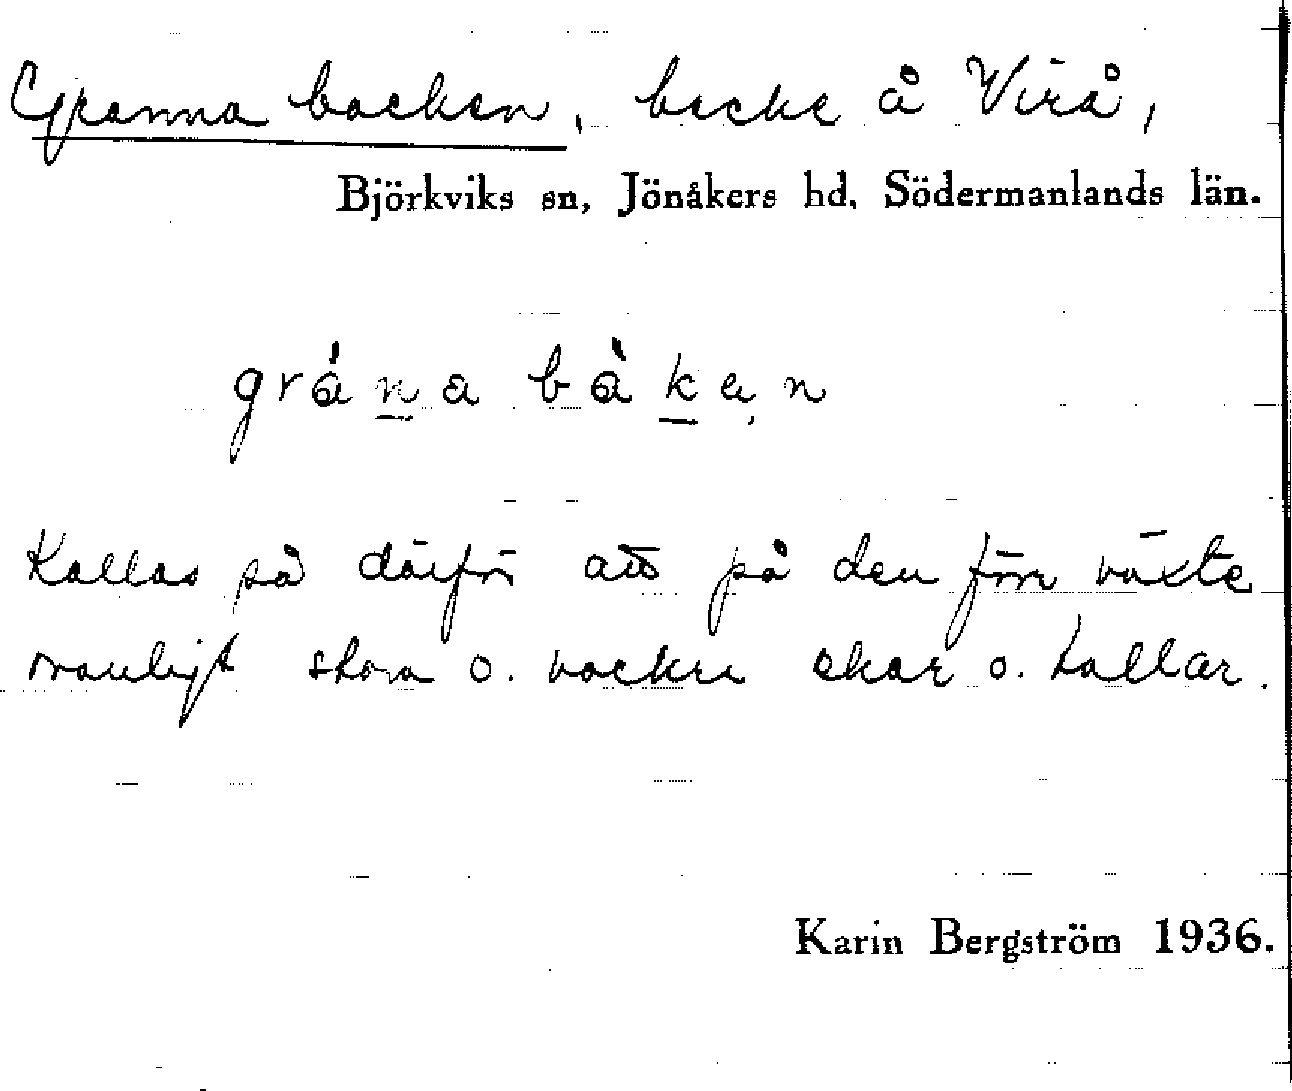 Granna backen, backe å Virå,
Björkviks sn, Jönåkers hd, Södermanlands län.
grána bàkan
Kallas så därför att på den förr växte
ovanligt stora o. vackra ekar o. tallar.
Karin Bergström 1936.